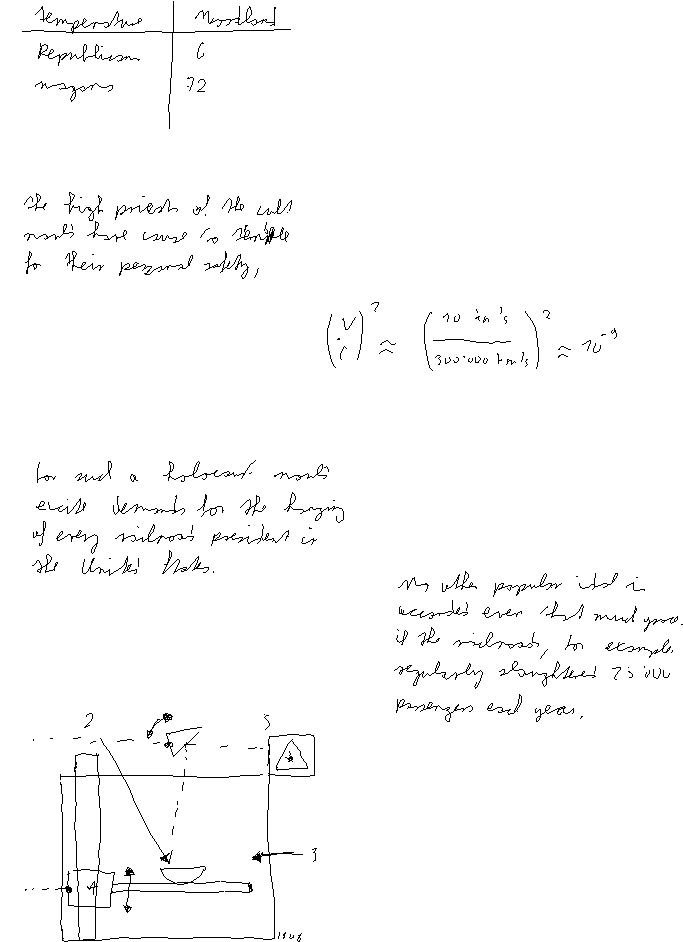 Temperature Woodland
Republican 6
wagons 72
the high priests of the cult
would have cause to tremble
for their personal safety,
(V/c)² ≈ (10 km/s / 300.000 km/s)² ≈ 10⁻⁹
for such a holocaust would
excite demands for the hanging
of every railroad president in
the United States.
No other popular idol is
accorded even that much grace.
if the railroads, for example,
regularly slaughtered 25.000
passengers each year,
2 5
3
4
1808